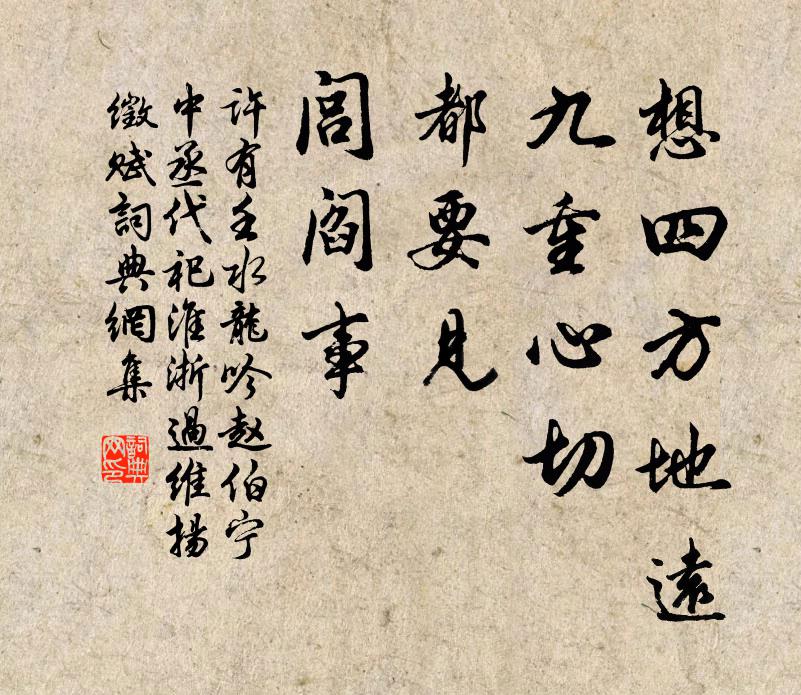 想四方地遠
九重心切
都要見
閭閻事
许有壬水龍吟赵伯宁
中丞代祀淮浙過维揚
徵赋詞典網集
詞典网印